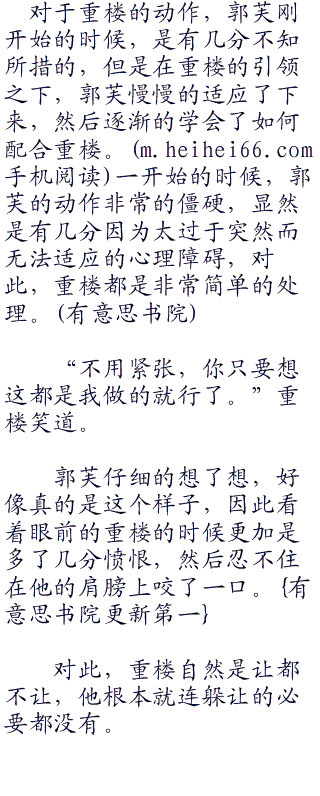 对于重楼的动作，郭芙刚
开始的时候，是有几分不知
所措的，但是在重楼的引领
之下，郭芙慢慢的适应了下
来，然后逐渐的学会了如何
配合重楼。(m.heihei66.com
手机阅读)一开始的时候，郭
芙的动作非常的僵硬，显然
是有几分因为太过于突然而
无法适应的心理障碍，对
此，重楼都是非常简单的处
理。(有意思书院)
“不用紧张，你只要想
这都是我做的就行了。”重
楼笑道。
郭芙仔细的想了想，好
像真的是这个样子，因此看
着眼前的重楼的时候更加是
多了几分愤恨，然后忍不住
在他的肩膀上咬了一口。{有
意思书院更新第一}
对此，重楼自然是让都
不让，他根本就连躲让的必
要都没有。